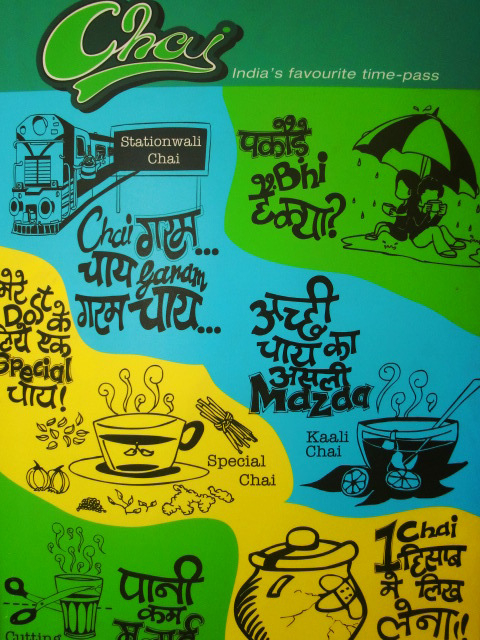 Chai
India's favourite time-pass
Stationwali
Chai
Chai गरम...
चाय garam
गरम चाय...
पकोड़े
Bhi
है क्या?
मेरे
Dost के
लिये एक
Special
चाय!
अच्छी
चाय का
असली
Mazaa
Kaali
Chai
Special
Chai
Cutting
पानी
कम
1 Chai
हिसाब
मे लिख
लेना!!